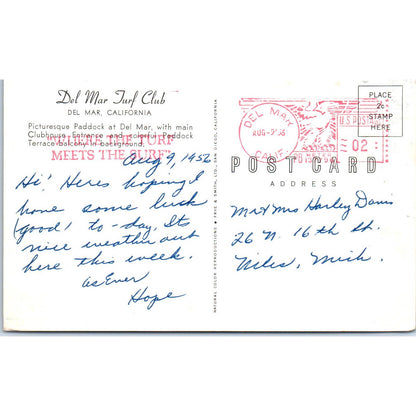 Del Mar Turf Club
DEL MAR, CALIFORNIA
Picturesque Paddock at Del Mar, with main
Clubhouse Entrance and colorful Paddock
Terrace balcony in background.
"WHERE THE TURF
MEETS THE SURF"
Aug 9, 1956
Hi! Heres hoping I
have some luck
(good) to-day. Its
nice weather out
here this week.
As Ever
Hope
NATURAL COLOR REPRODUCTIONS • FRYE & SMITH, LTD., SAN DIEGO, CALIFORNIA
DEL MAR
AUG-9'56
CALIF.
U.S. POSTAGE
02
PLACE
2c
STAMP
HERE
POST CARD
ADDRESS
Mr & Mrs Harley Davis
26 N. 16th St.
Niles, Mich.